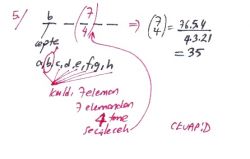 5/ b (7 4) ⇒ (7 4) = 7.6.5.4 / 4.3.2.1
cepte
= 35
a,b,c,d,e,f,g,h
kaldı 7 eleman
7 elemandan
4 tane
seçilecek
CEVAP:D